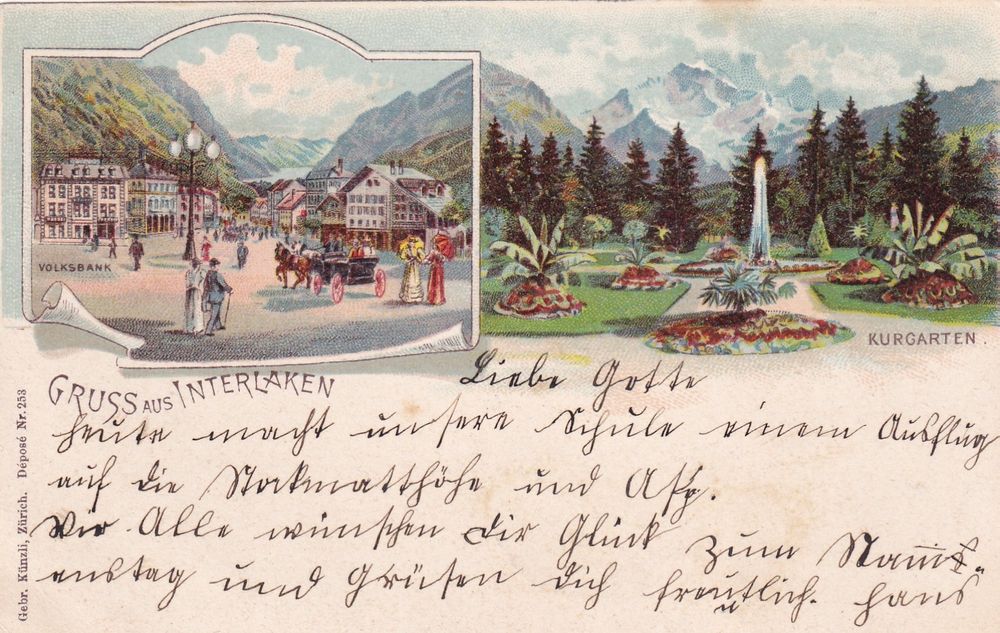 VOLKSBANK
KURGARTEN.
GRUSS AUS INTERLAKEN
Liebe Gotte
heute macht unsere Schule einem Ausflug
auf die Stockmatthöhe und Asp.
Wir Alle wünschen Dir Glück zum Namens-
enstag und Grüsen Dich freutlich. Hans
Gebr. Künzli, Zürich. Déposé Nr. 253